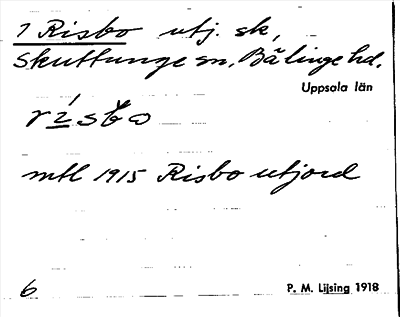 1 Risbo utj. sk,
Skuttunge sn, Bälinge hd.
Uppsala län
mtl 1915 Risbo utjord
6 P. M. Lijsing 1918